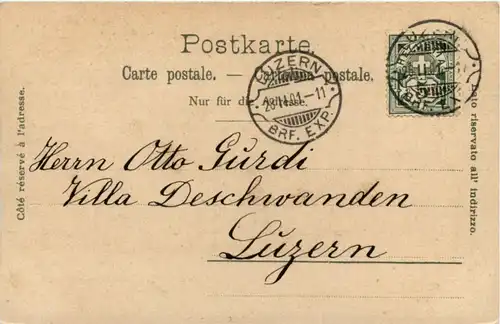 Postkarte.
Carte postale. — Cartolina postale.
Nur für die Adresse.
Côté réservé à l'adresse.
Lato riservato all' indirizzo.
LUZERN
BRF. EXP.
LUZERN
BRF. EXP.
Herrn Otto Gúrdi
Villa Deschwanden
Lúzern